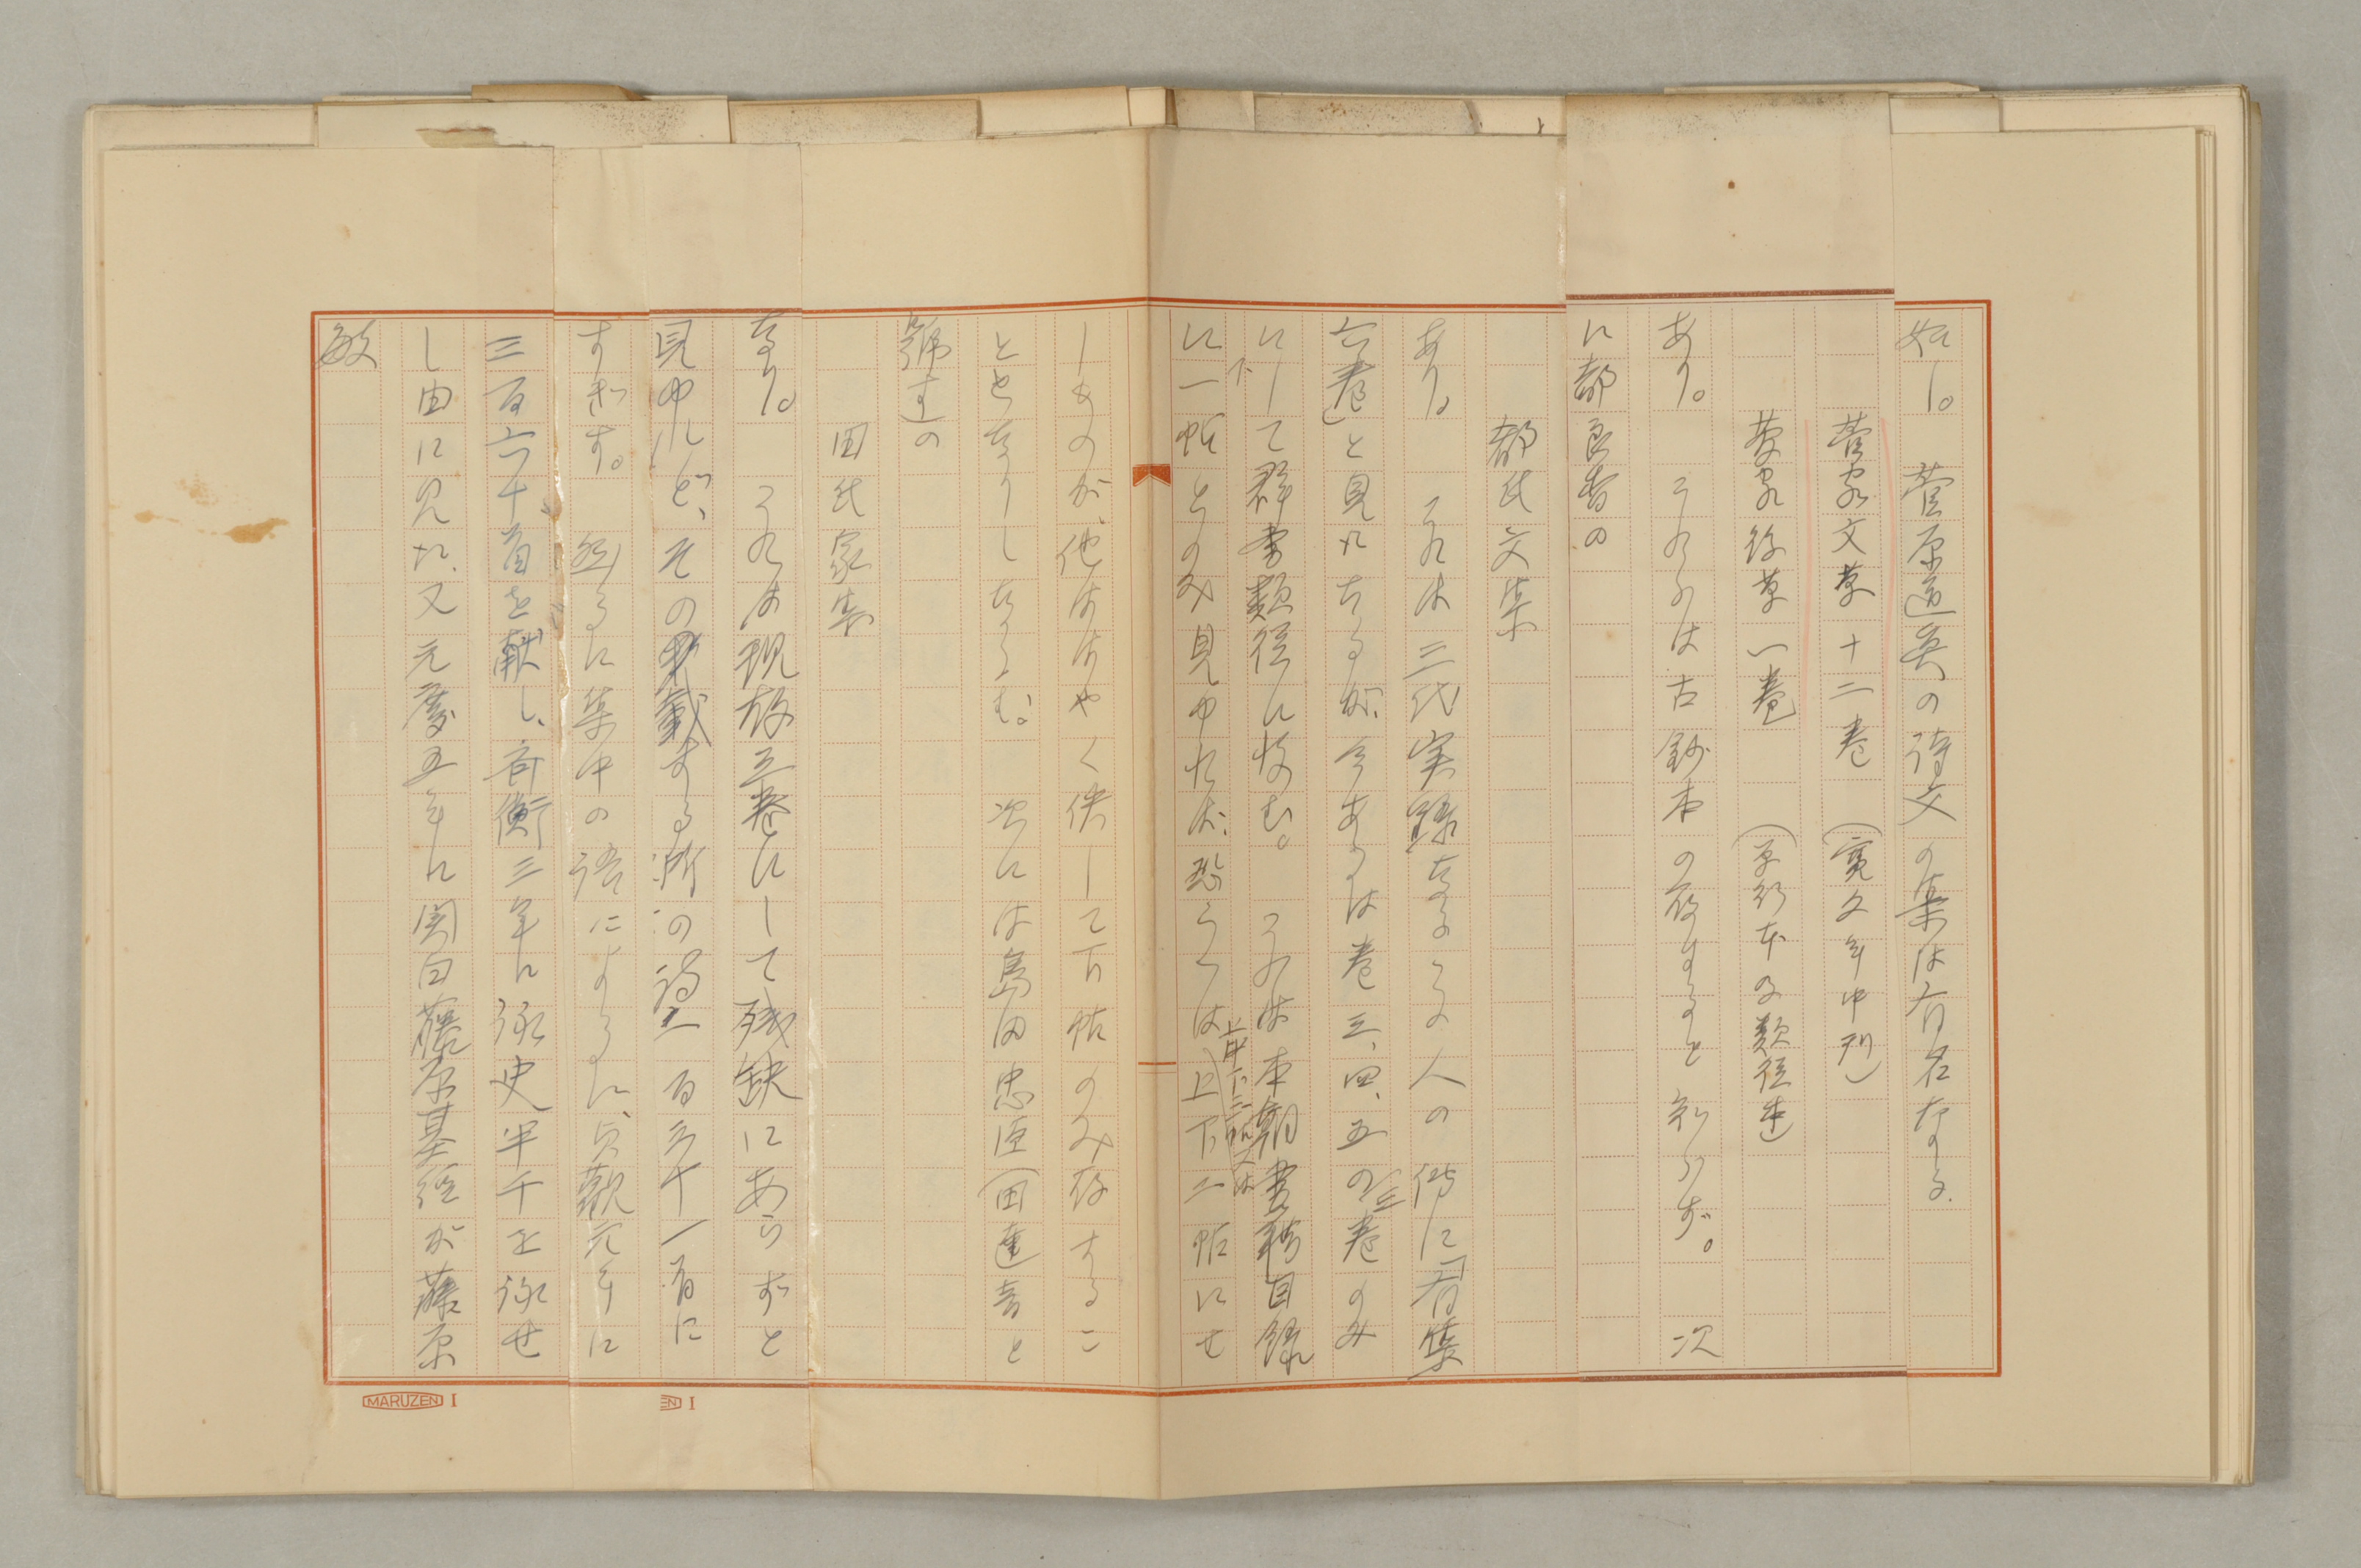 如し。菅原道真の詩文の集は有名なる
菅家文草 十二巻 (寛文年中刊)
菅家後草 一巻 (享和本及類従本)
あり。これらは古鈔本の存するを知らず。次
に都良香の
都氏文集
あり。これは三代実録なるこの人の伝に「有集
六巻」と見えたるが、今あるは巻三、四、五の三巻のみ
にして群書類従に收む。これは本朝書籍目録
に下一帖とのみ見ゆれば、恐らくは上中下三帖又は上下二帖にせ
しものが、他ははやく佚して下帖のみ存するこ
ととなりしならむ。次には島田忠臣(田達音と
号す)の
田氏家集
なり。これは現存三巻にして残缺にあらずと
見ゆれど、その載する所の詩二百三十一首に
すぎず。然るに集中の語によるに、貞観元年に
三百六十首を献し、斉衡三年に詠史半千を詠せ
し由に見え、又元慶五年に関白藤原基経が藤原
敏
MARUZEN I
EN I